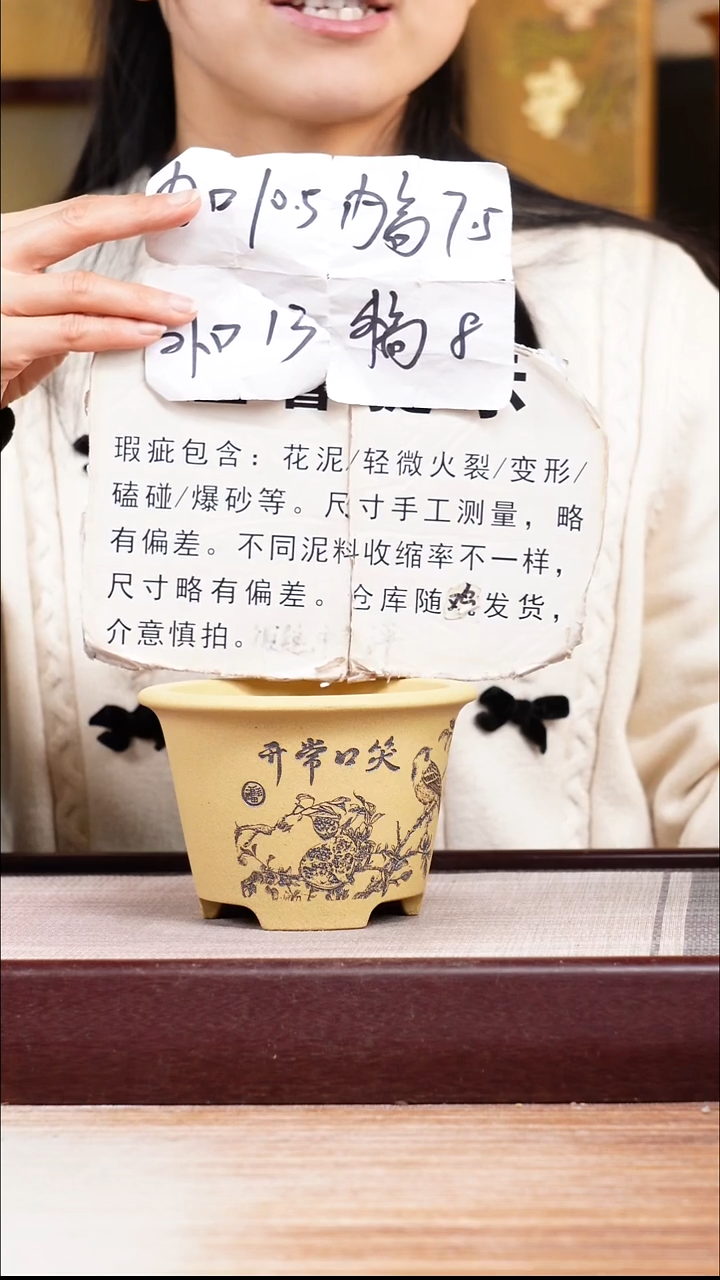 内口10.5 内高7.5
外口 13 外高 8
瑕疵包含：花泥/轻微火裂/变形/
磕碰/爆砂等。尺寸手工测量，略
有偏差。不同泥料收缩率不一样，
尺寸略有偏差。仓库随机发货，
介意慎拍。
开常口笑